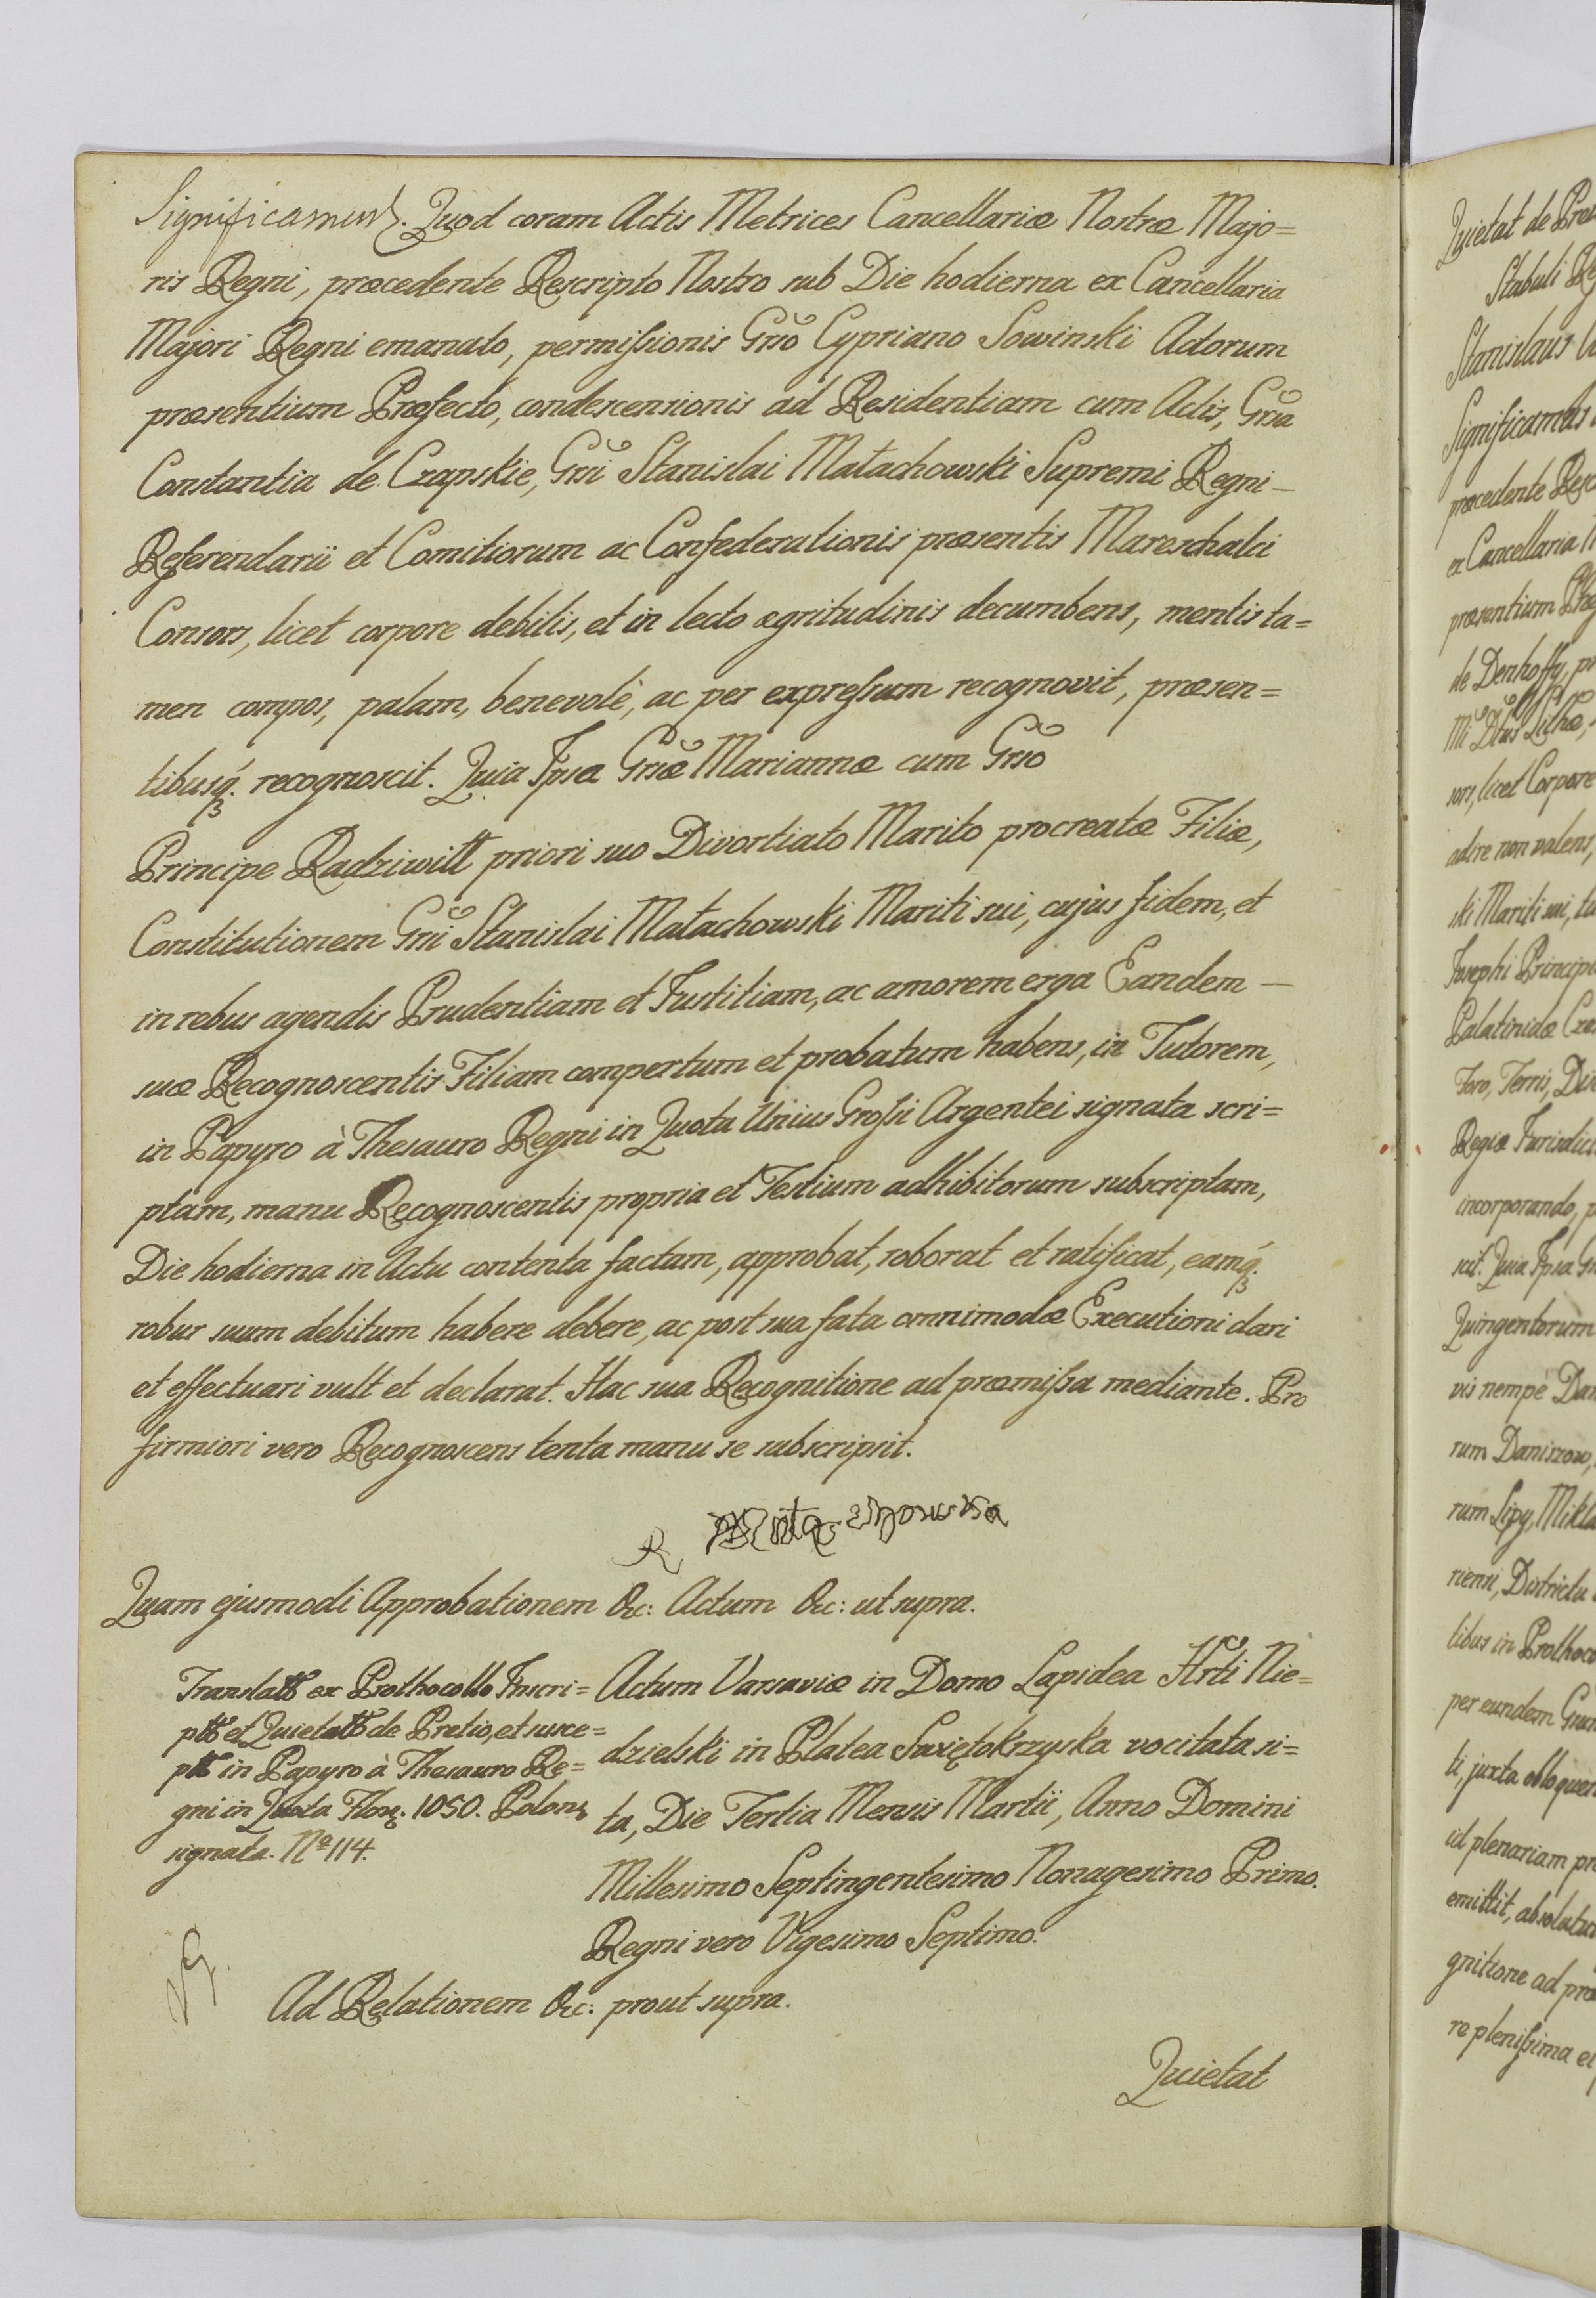 Significamus. Quod coram Actis Metrices Cancellariæ Nostræ Majo=
ris Regni, præcedente Rescripto Nostro sub Die hodierna ex Cancellaria
Majori Regni emanato, permißionis Grso Cypriano Sowinski Actorum
præsentium Præfecto, condescensionis ad Residentiam cum Actis, Grsa
Constantia de Czapskie, Grsi Stanislai Małachowski Supremi Regni—
Referendarii et Comitiorum ac Confederationis præsentis Mareschalci
Consors, licet corpore debilis, et in lecto ægritudinis decumbens, mentis ta=
men compos, palam, benevolè, ac per expreßum recognovit, præsen=
tibusq. recognoscit. Quia Ipsa Grsæ Mariannæ cum Grso
Principe Radziwiłł priori suo Divortiato Marito procreatæ Filiæ,
Constitutionem Grsi Stanislai Małachowski Mariti sui, cujus fidem, et
in rebus agendis Prudentiam et Justitiam, ac amorem erga Eandem—
suæ Recognoscentis Filiam compertum et probatum habens, in Tutorem,
in Papyro à Thesauro Regni in Quota Unius Großi Argentei signata scri=
ptam, manu Recognoscentis propria et Testium adhibitorum subscriptam,
Die hodierna in Actu contenta factam, approbat, roborat et ratificat, eamq.
robur suum debitum habere debere, ac post sua fata omnimodæ Executioni dari
et effectuari vult et declarat. Hac sua Recognitione ad præmißa mediante. Pro
firmiori vero Recognoscens tenta manu se subscripsit.
Quam ejusmodi Approbationem &c: Actum &c: ut supra.
Translatt ex Prothocollo Inscri=
ptt et Quietatt de Pretio, et susce=
ptt in Papyro à Thesauro Re=
gni in Quota Flor. 1050. Polon
signata. No 114.
Actum Varsaviæ in Domo Lapidea Hrti Nie=
dzielski in Platea Swiętokrzyska vocitata si=
ta, Die Tertia Mensis Martii, Anno Domini
Millesimo Septingentesimo Nonagesimo Primo.
Regni vero Vigesimo Septimo.
Ad Relationem &c: prout supra.
Quietat
Quietat de
Stabuli
Stanislaus
Significamus
præcedente
ex Cancellaria
præsentium
de Denhoffy,
sors, licet Corpore
adire non valens,
ski Mariti sui,
Josephi
Palatinidæ
Foro, Terris,
Regiæ
incorporando,
scit. Quia Ipsa
Quingentorum
vis nempè
rum Daniszow,
rum Lipy,
riensi, Districtu
tibus in
per eundem
ti, juxta
id plenariam
emittit,
gnitione ad
re plenißima